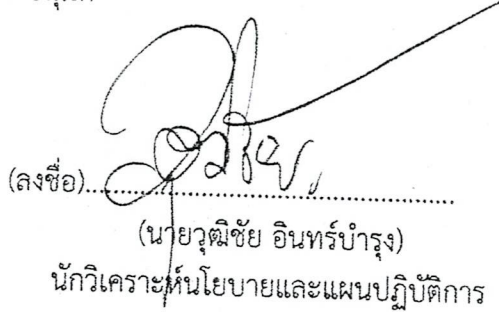 (ลงชื่อ)
(นายวุฒิชัย อินทร์บำรุง)
นักวิเคราะห์นโยบายและแผนปฏิบัติการ